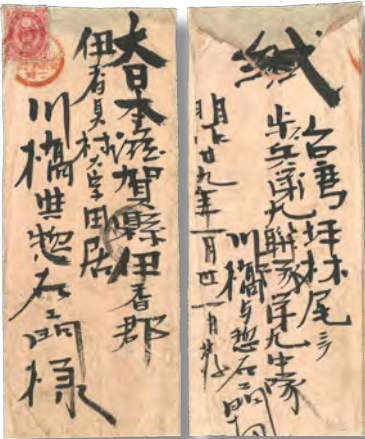 大日本滋賀縣伊香郡
伊香具村大字田居
川橋与惣右エ門様
緘
台湾坪林尾ニテ
歩兵第九聯隊第九中隊
川橋与惣右エ門
明治廿九年一月廿一日発